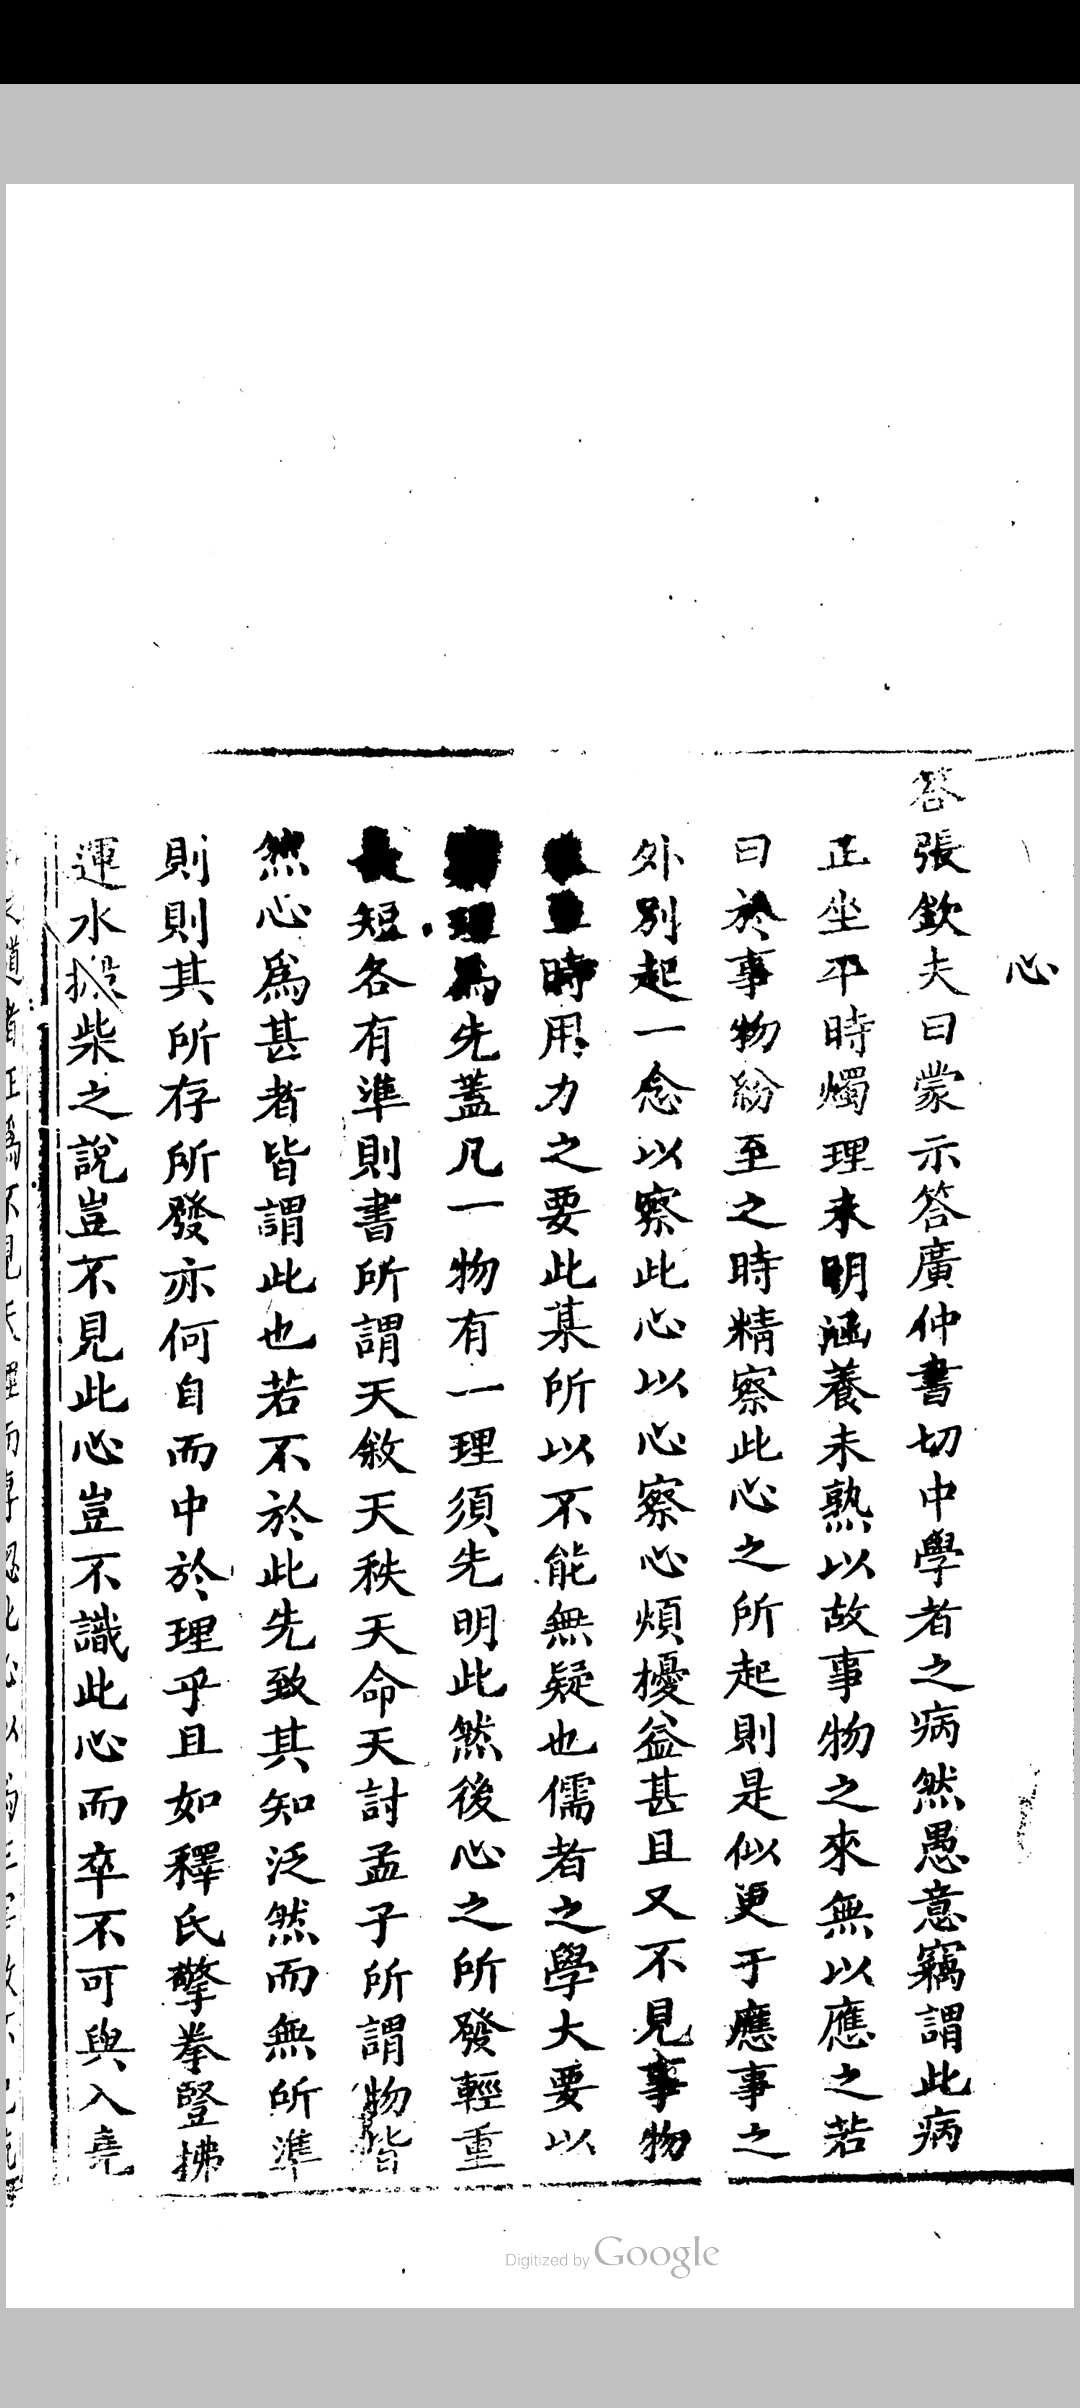 心
答張欽夫曰蒙示答廣仲書切中學者之病然愚意竊謂此病
正坐平時燭理未明涵養未熟以故事物之來無以應之若
曰於事物紛至之時精察此心之所起則是似更于應事之
外別起一念以察此心以心察心煩擾益甚且又不見事物
時用力之要此某所以不能無疑也儒者之學大要以
理為先蓋凡一物有一理須先明此然後心之所發輕重
長短各有準則書所謂天敘天秩天命天討孟子所謂物皆
然心爲甚者皆謂此也若不於此先致其知泛然而無所準
則則其所存所發亦何自而中於理乎且如釋氏擎拳豎拂
運水搬柴之說豈不見此心豈不識此心而卒不可與入堯
Digitized by Google